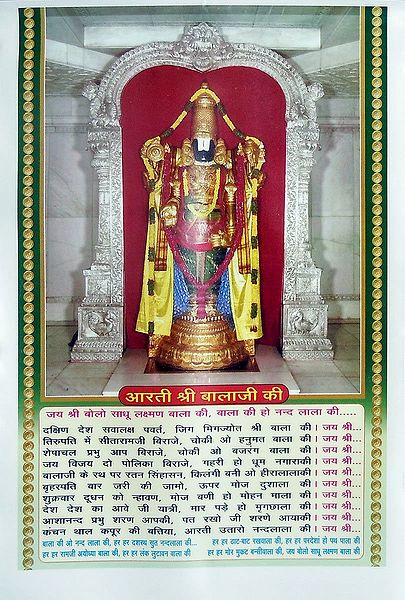 आरती श्री बालाजी की
जय श्री बोलो साधू लक्ष्मण बाला की, बाला की हो नन्द लाला की.....
दक्षिण देश सवालक्ष पवतं, जिग मिगज्योत श्री बाला की। जय श्री...
तिरुपति में सीतारामजी बिराजे, चोकी ओ हनुमत बाला की। जय श्री...
शेषाचल प्रभु आप बिराजे, चोकी ओ बजरंग बाला की। जय श्री...
जय विजय दो पोलिका बिराजे, गहरी हो धूम नगाराकी। जय श्री...
बालाजी के रथ पर रतन सिंहासन, किलंगी बनी ओ हीरालालाकी। जय श्री...
बृहस्पति बार जरी की जामो, ऊपर मोज दुशाला की। जय श्री...
शुक्रवार दूधन को न्हावण, मोज वणी हो मोहन माला की। जय श्री...
देश देश का आवे जी यात्री, मार पड़े हो मृगछाला की। जय श्री...
आशानन्द प्रभु शरण आपकी, पत रखो जी शरणे आयाकी। जय श्री...
कंचन थाल कपूर की बतिया, आरती उतारो नन्दलाला की। जय श्री...
बाला की ओ नन्द लाला की, हर हर दशरथ सुत नन्दलाला की... हर हर ठाट-बाट रखवाला की, हर हर परदेशां हो पथ पाला की
हर हर रामजी अयोध्या बाला की, हर हर लंक लुटावन बाला की हर हर मोर मुकट बन्सीवाला की, जय बोलो साधू लक्ष्मण बाला की